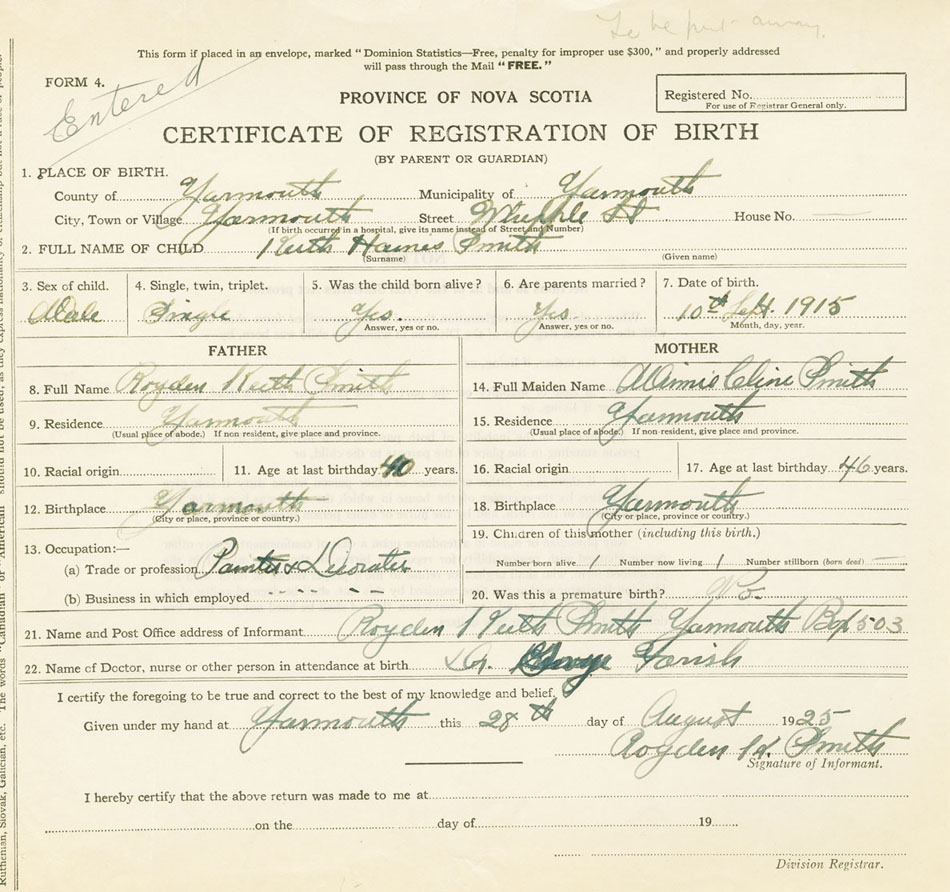 To be put away.
This form if placed in an envelope, marked "Dominion Statistics—Free, penalty for improper use $300," and properly addressed
will pass through the Mail "FREE."
FORM 4.
Entered
PROVINCE OF NOVA SCOTIA
Registered No.
For use of Registrar General only.
CERTIFICATE OF REGISTRATION OF BIRTH
(BY PARENT OR GUARDIAN)
1. PLACE OF BIRTH.
County of Yarmouth Municipality of Yarmouth
City, Town or Village Yarmouth Street Whipple St House No.
(If birth occurred in a hospital, give its name instead of Street and Number)
2. FULL NAME OF CHILD Keith Haines Smith
(Surname) (Given name)
3. Sex of child. 4. Single, twin, triplet. 5. Was the child born alive? 6. Are parents married? 7. Date of birth.
Male Single Yes. Yes. 10th Sept. 1915
Answer, yes or no. Answer, yes or no. Month, day, year.
FATHER MOTHER
8. Full Name Royden Keith Smith 14. Full Maiden Name Minnie Cline Smith
9. Residence Yarmouth 15. Residence Yarmouth
(Usual place of abode.) If non resident, give place and province. (Usual place of abode.) If non-resident, give place and province.
10. Racial origin 11. Age at last birthday 40 years. 16. Racial origin 17. Age at last birthday 46 years.
12. Birthplace Yarmouth 18. Birthplace Yarmouth
(City or place, province or country.) (City or place, province or country.)
13. Occupation:— 19. Children of this mother (including this birth.)
(a) Trade or profession Painter & Decorater Number born alive 1 Number now living 1 Number stillborn (born dead)
(b) Business in which employed 20. Was this a premature birth? No.
21. Name and Post Office address of Informant Royden Keith Smith Yarmouth Box 503
22. Name of Doctor, nurse or other person in attendance at birth Dr. George Farish
I certify the foregoing to be true and correct to the best of my knowledge and belief,
Given under my hand at Yarmouth this 28th day of August 1925
Royden K. Smith
Signature of Informant.
I hereby certify that the above return was made to me at
on the day of 19
Division Registrar.